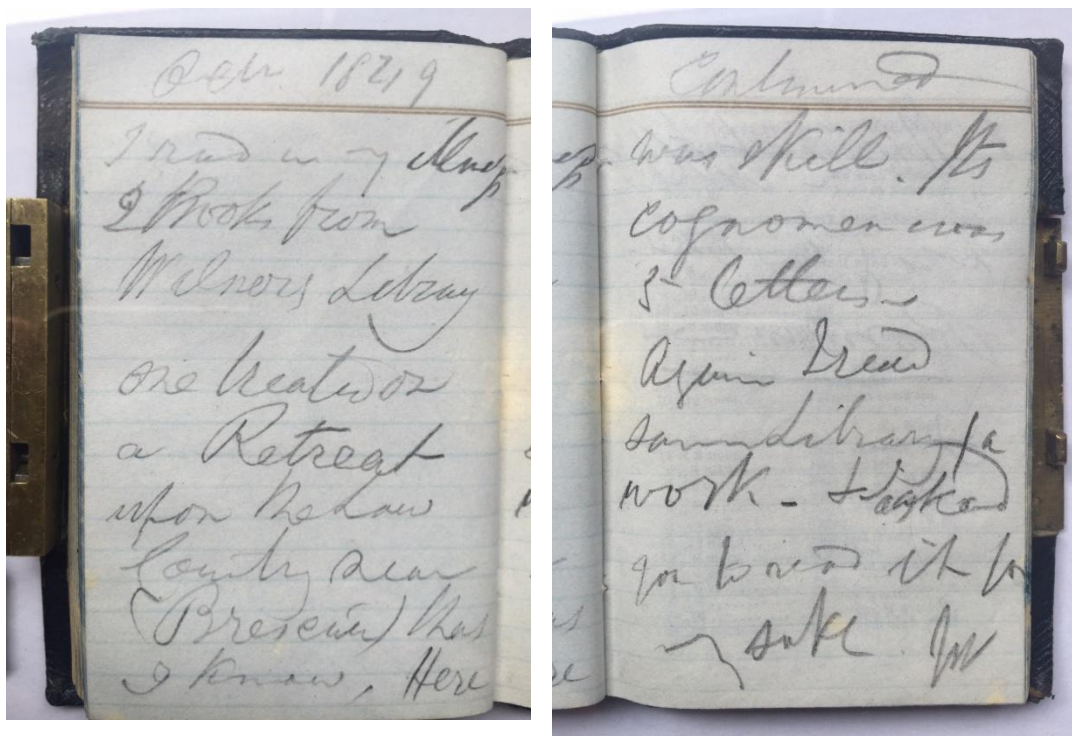 1849
I read in my illness
2 Books from
Library
one treated on
a Retreat
upon the Law
Country near
(Brescia) this
I know, Here
Continued
was skill. Its
cognomen was
5 letters
Again I read
same Library a
work - & I asked
you to read it for
my sake.